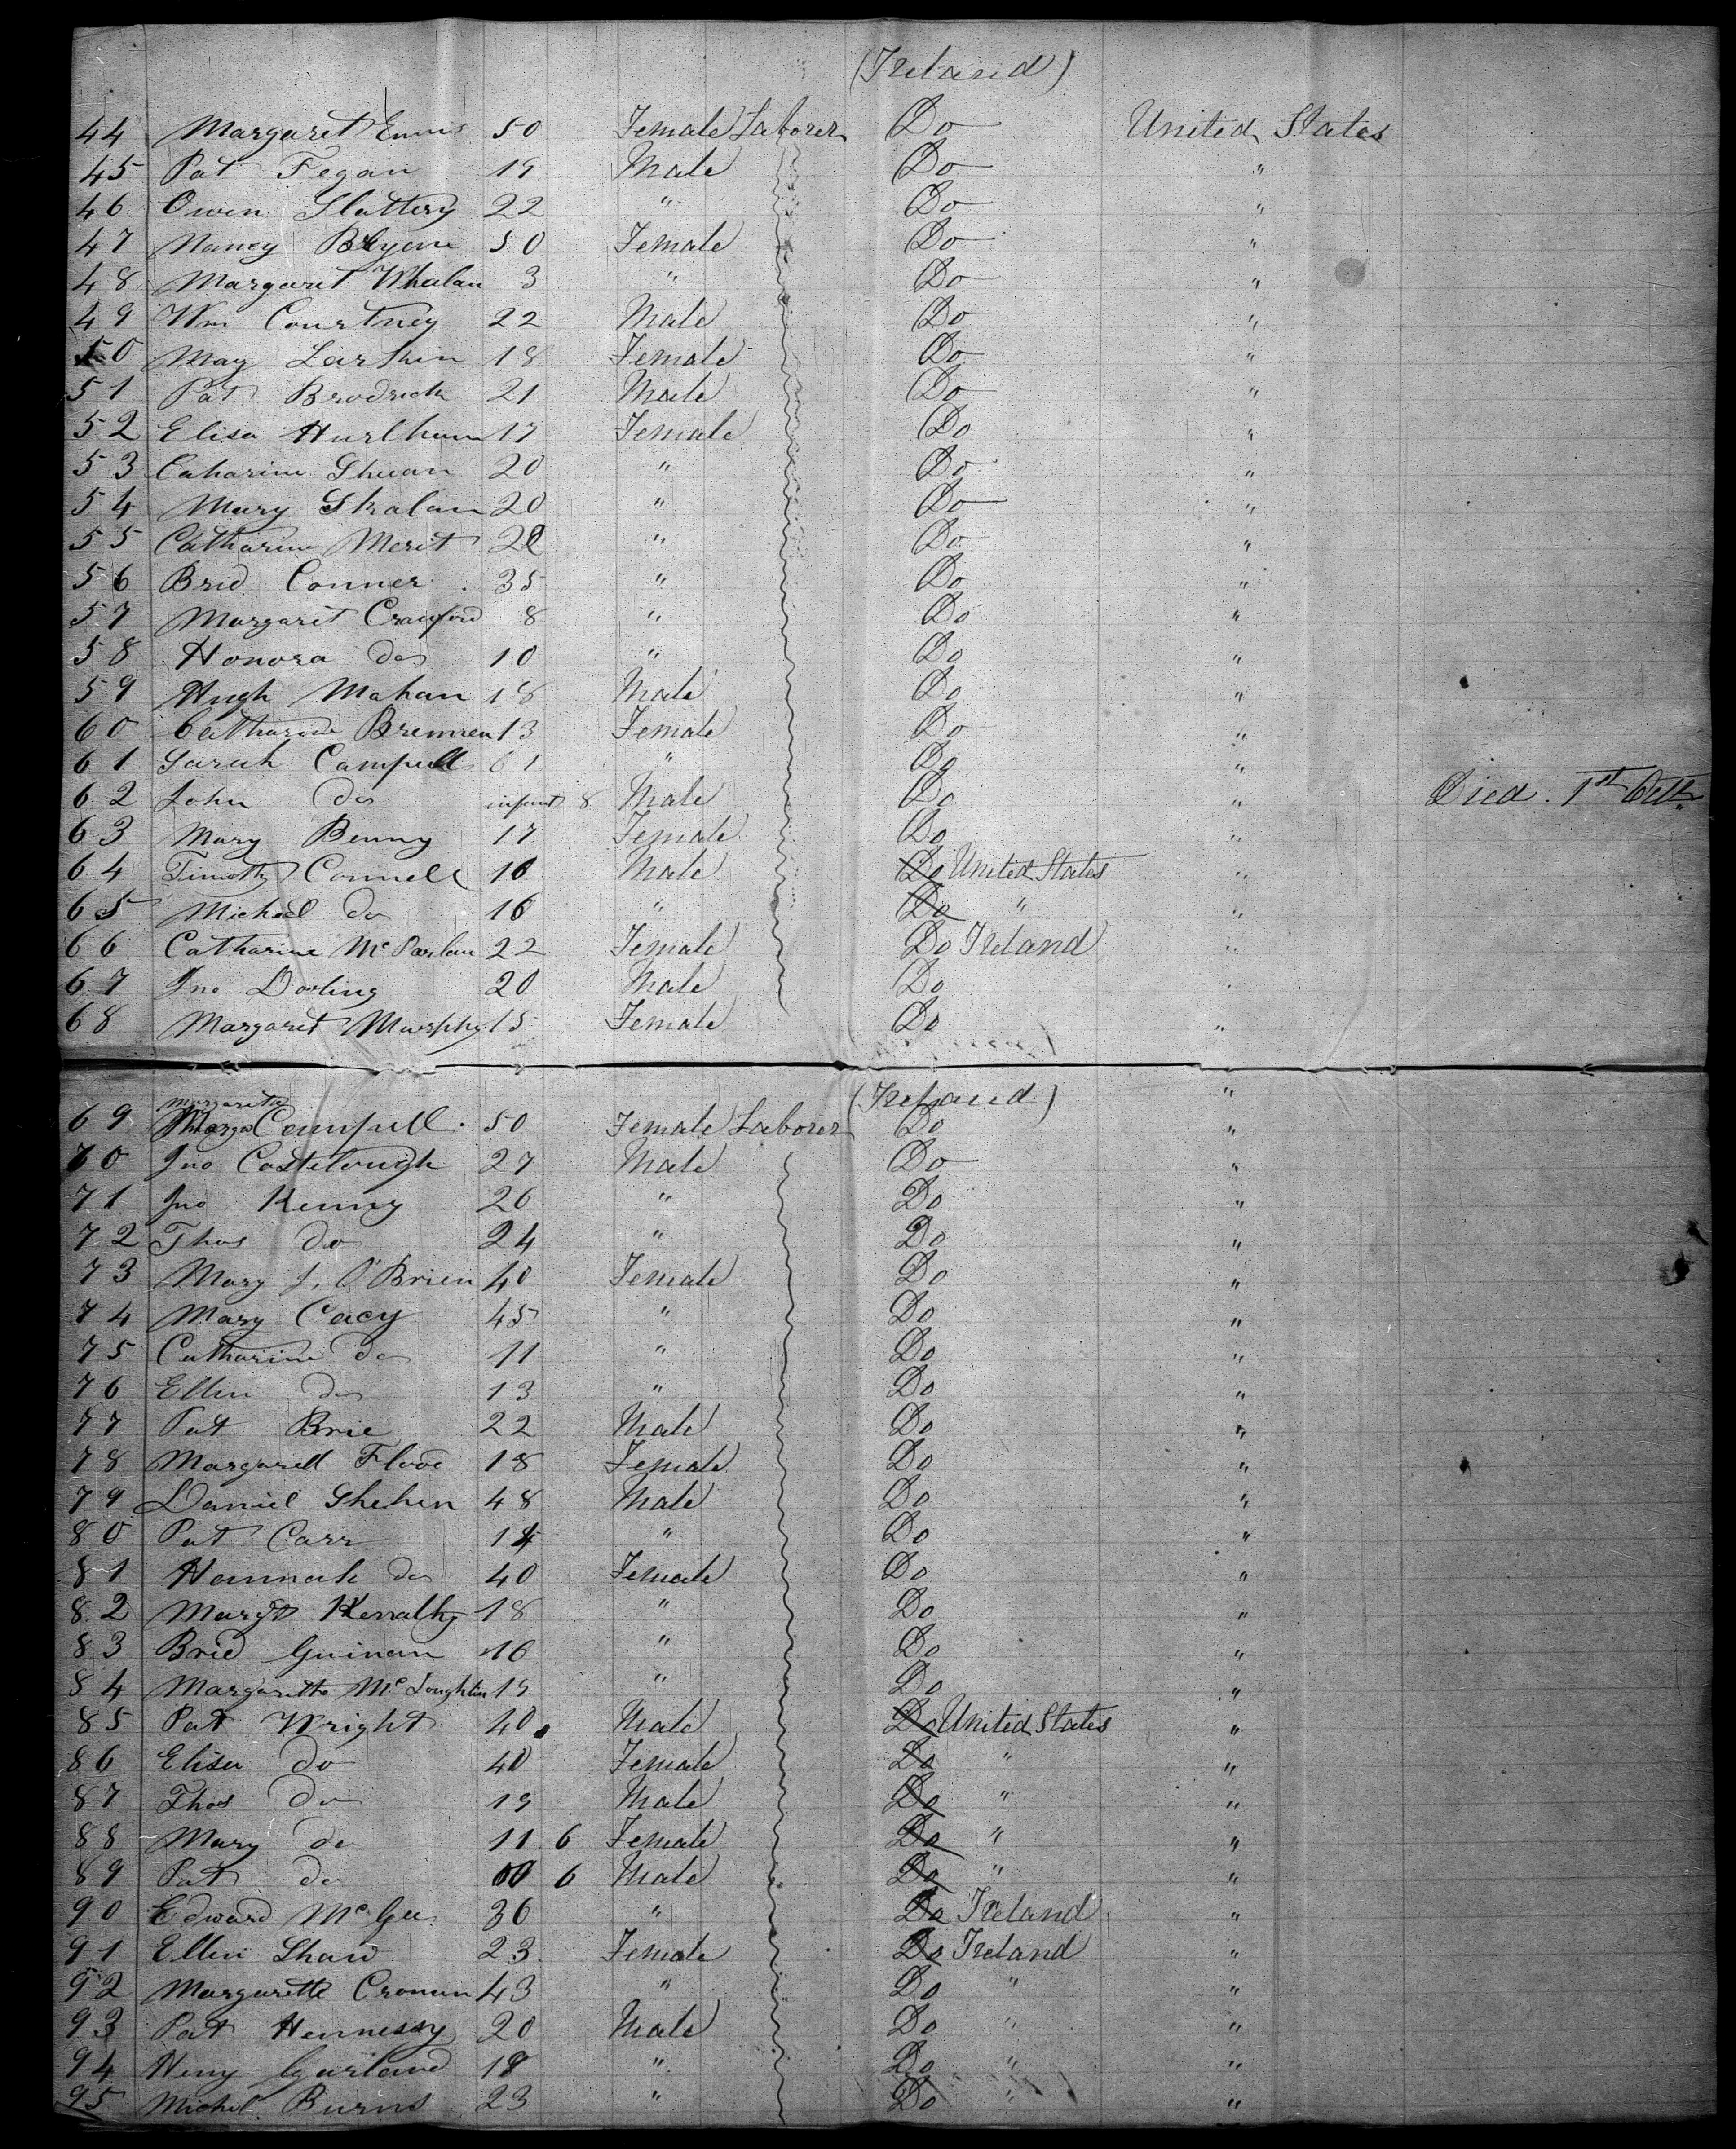 (Ireland)
44 Margaret Ennis 50 Female Laborer Do United States
45 Pat Fegan 19 Male Do "
46 Owen Slattery 22 " Do "
47 Nancy Bryem 50 Female Do "
48 Margaret Whalan 3 " Do "
49 Wm Courtney 22 Male Do "
50 May Larkin 18 Female Do "
51 Pat Brodrick 21 Male Do "
52 Elisa Hurlham 17 Female Do "
53 Caharine Shuan 20 " Do "
54 Mary Skalan 20 " Do "
55 Catharine Merit 20 " Do "
56 Brid Conner 35 " Do "
57 Margaret Crawford 8 " Do "
58 Honora do 10 " Do "
59 Hugh Mahan 18 Male Do "
60 Catharine Bremren 13 Female Do "
61 Sarah Campell 61 " Do "
62 John do infant 8 Male Do " Died. 1st Octr
63 Mary Benny 17 Female Do "
64 Timothy Connell 16 Male Do United States "
65 Michael do 16 " Do " "
66 Catharine McParlan 22 Female Do Ireland "
67 Jno Darling 20 Male Do "
68 Margaret Murphy 15 Female Do "
(Ireland) "
Margaretta
69 Campell 50 Female Laborer Do "
70 Jno Costelough 27 Male Do "
71 Jno Kenny 26 " Do "
72 Thos do 24 " Do "
73 Mary J, O'Brien 40 Female Do "
74 Mary Cacy 45 " Do "
75 Catharine do 11 " Do "
76 Ellin do 13 " Do "
77 Pat Brie 22 Male Do "
78 Margarett Flood 18 Female Do "
79 Daniel Shehen 48 Male Do "
80 Pat Carr 14 " Do "
81 Hannah do 40 Female Do "
82 Margt 18 " Do "
83 Brid Guinan 16 " Do "
84 Margaretta McLoughlin 19 " Do "
85 Pat Wright 40 Male Do United States "
86 Elisa do 40 Female Do " "
87 Thos do 19 Male Do " "
88 Mary do 11 6 Female Do " "
89 Pat do 00 6 Male Do " "
90 Edward McGee 36 " Do Ireland "
91 Ellen Shaw 23 Female Do Ireland "
92 Margarette Cronun 43 " Do " "
93 Pat Hennessy 20 Male Do " "
94 Heny Garland 18 " Do " "
95 Michel Burns 23 " Do " "